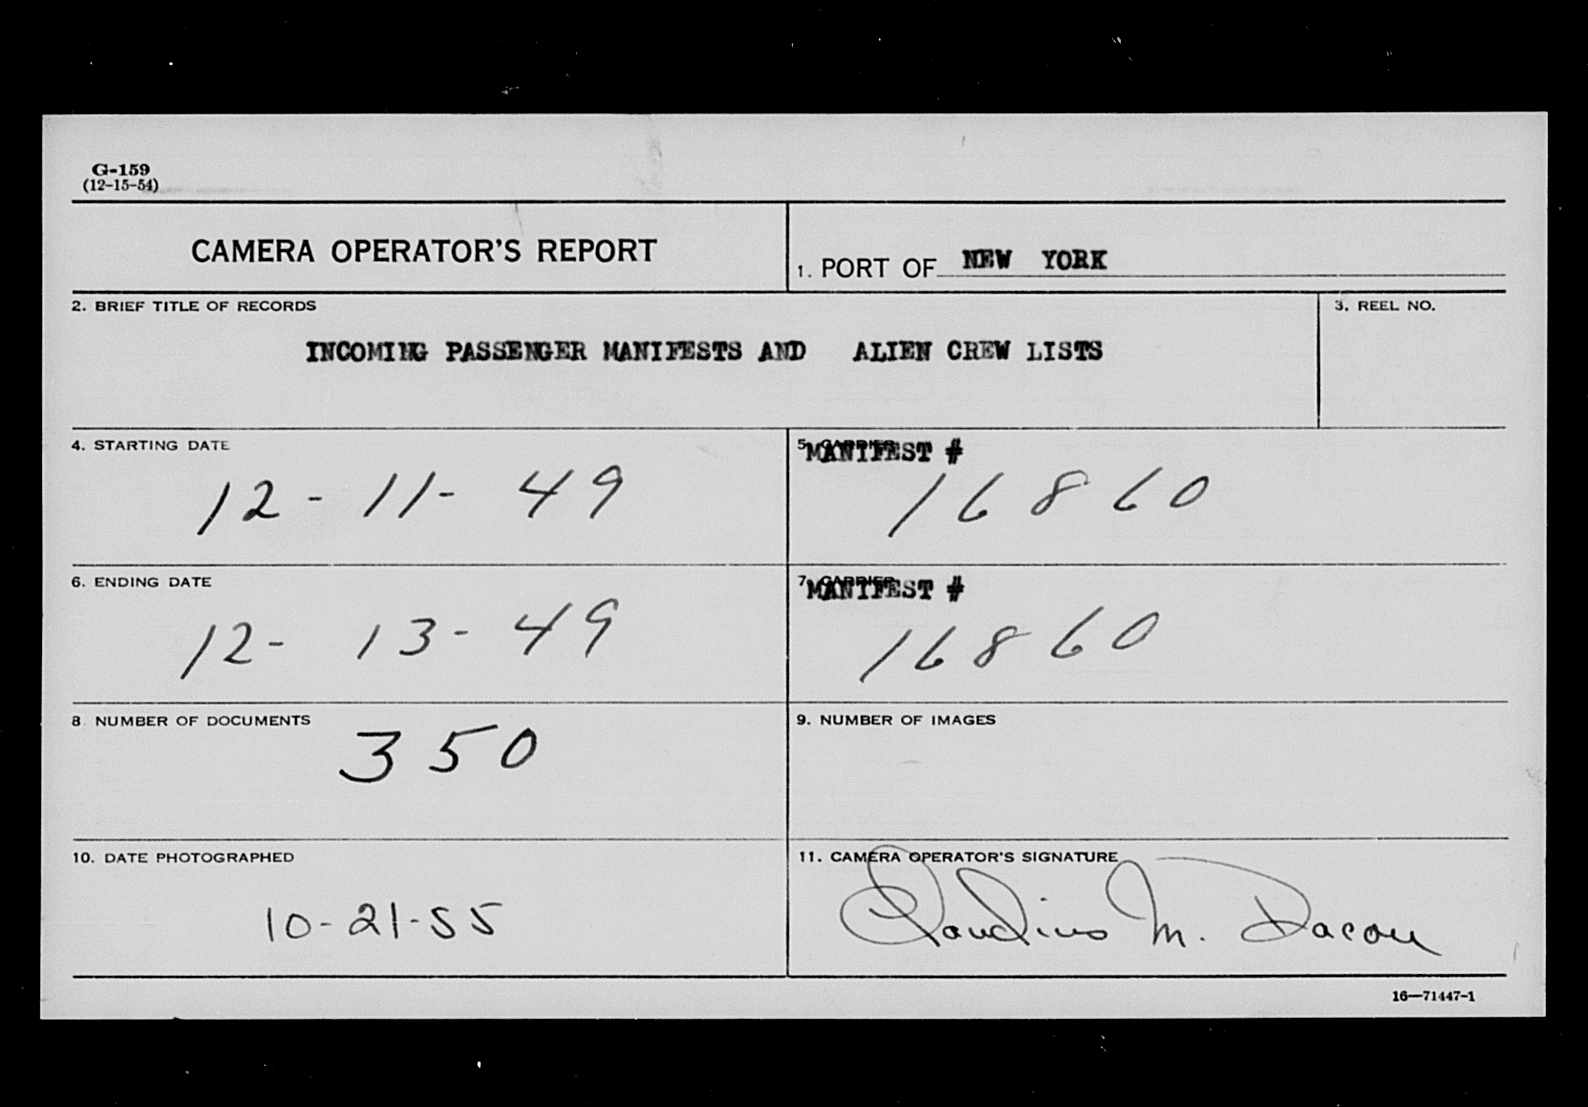 G-159
(12-15-54)
CAMERA OPERATOR'S REPORT
1. PORT OF NEW YORK
2. BRIEF TITLE OF RECORDS
3. REEL NO.
INCOMING PASSENGER MANIFESTS AND ALIEN CREW LISTS
4. STARTING DATE
12-11-49
5. CARRIER
MANIFEST #
16860
6. ENDING DATE
12-13-49
7. CARRIER
MANIFEST #
16860
8 NUMBER OF DOCUMENTS
350
9. NUMBER OF IMAGES
10. DATE PHOTOGRAPHED
10-21-55
11. CAMERA OPERATOR'S SIGNATURE
Claudius M. Dacon
16—71447-1